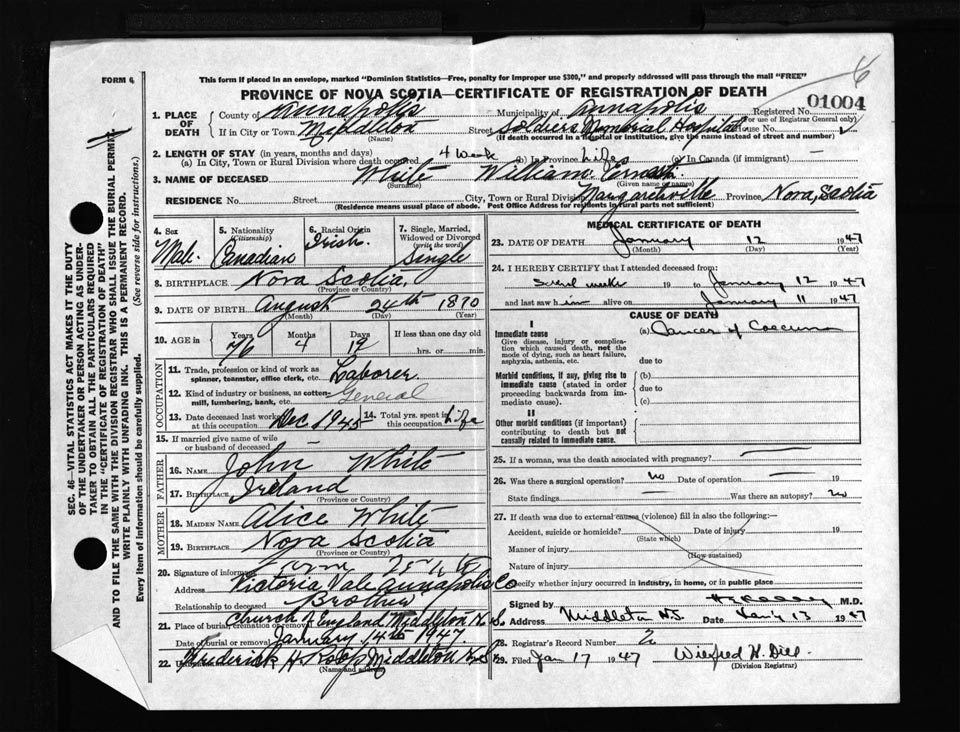 6
FORM 6
This form if placed in an envelope, marked "Dominion Statistics—Free, penalty for improper use $300," and properly addressed will pass through the mail "FREE"
PROVINCE OF NOVA SCOTIA—CERTIFICATE OF REGISTRATION OF DEATH
01004
1. PLACE OF DEATH
County of Annapolis Municipality of Annapolis Registered No.
(For use of Registrar General only)
If in City or Town Middleton Street Soldiers Memorial Hospital House No.
(Name) (If death occurred in a hospital or institution, give the name instead of street and number)
2. LENGTH OF STAY (in years, months and days)
(a) In City, Town or Rural Division where death occurred 4 Week (b) In Province Life (c) In Canada (if immigrant) —
3. NAME OF DECEASED White William Ernest
(Surname) (Given name or names)
RESIDENCE No. Street City, Town or Rural Division Margaretville Province Nova Scotia
(Residence means usual place of abode. Post Office Address for residents in rural parts not sufficient)
4. Sex Male
5. Nationality (Citizenship) Canadian
6. Racial Origin Irish
7. Single, Married, Widowed or Divorced (write the word) Single
8. BIRTHPLACE Nova Scotia
(Province or Country)
9. DATE OF BIRTH August 24th 1870
(Month) (Day) (Year)
10. AGE in Years Months Days If less than one day old
76 4 19 hrs. or min.
OCCUPATION
11. Trade, profession or kind of work as spinner, teamster, office clerk, etc. Laborer
12. Kind of industry or business, as cotton mill, lumbering, bank, etc. General
13. Date deceased last worked at this occupation Dec 1945
14. Total yrs. spent in this occupation Life
15. If married give name of wife or husband of deceased
FATHER
16. NAME John White
17. BIRTHPLACE Ireland
(Province or Country)
MOTHER
18. MAIDEN NAME Alice White
19. BIRTHPLACE Nova Scotia
(Province or Country)
20. Signature of informant
Address Victoria Vale Annapolis Co
Relationship to deceased Brother
21. Place of burial, cremation or removal Church of England Middleton N.S.
Date of burial or removal January 14th 1947
22. Frederick H. Roop Middleton N.S.
(Name and address)
MEDICAL CERTIFICATE OF DEATH
23. DATE OF DEATH January 12 1947
(Month) (Day) (Year)
24. I HEREBY CERTIFY that I attended deceased from:
Several weeks 19 to January 12 1947
and last saw him alive on January 11 1947
CAUSE OF DEATH
I
Immediate cause (a) Cancer of Caecum
Give disease, injury or complication which caused death, not the mode of dying, such as heart failure, asphyxia, asthenia, etc.
due to
Morbid conditions, if any, giving rise to immediate cause (stated in order proceeding backwards from immediate cause).
(b)
due to
(c)
II
Other morbid conditions (if important) contributing to death but not causally related to immediate cause.
25. If a woman, was the death associated with pregnancy? —
26. Was there a surgical operation? No Date of operation 19
State findings — Was there an autopsy? No
27. If death was due to external causes (violence) fill in also the following:—
Accident, suicide or homicide? Date of injury 19
(State which)
Manner of injury
(How sustained)
Nature of injury
Specify whether injury occurred in industry, in home, or in public place
Signed by M.D.
Address Middleton N.S. Date Jan'y 13 1947
28. Registrar's Record Number 2
29. Filed Jan 17 1947 Wilfred H. Dill
(Division Registrar)
SEC. 46—VITAL STATISTICS ACT MAKES IT THE DUTY OF THE UNDERTAKER OR PERSON ACTING AS UNDERTAKER TO OBTAIN ALL THE PARTICULARS REQUIRED IN THE "CERTIFICATE OF REGISTRATION OF DEATH" AND TO FILE THE SAME WITH THE DIVISION REGISTRAR WHO SHALL ISSUE THE BURIAL PERMIT.
WRITE PLAINLY WITH UNFADING INK. THIS IS A PERMANENT RECORD.
Every item of information should be carefully supplied. (See reverse side for instructions.)